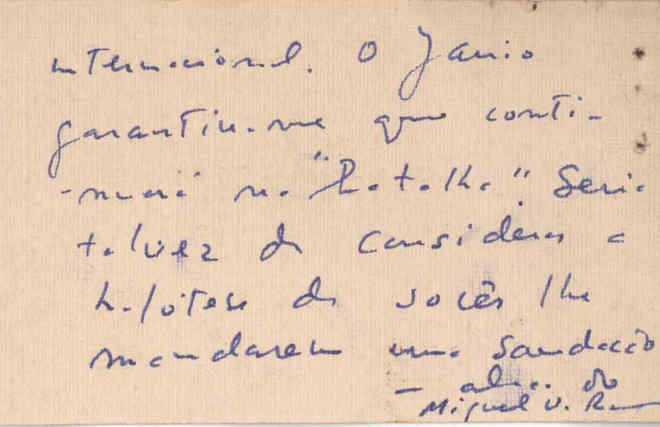 internacional. O Jânio
garantiu-me que conti-
-nuará na "Batalha" Seria
talvez de considerar a
hipótese de vocês lhe
mandarem uma saudação
Miguel V.